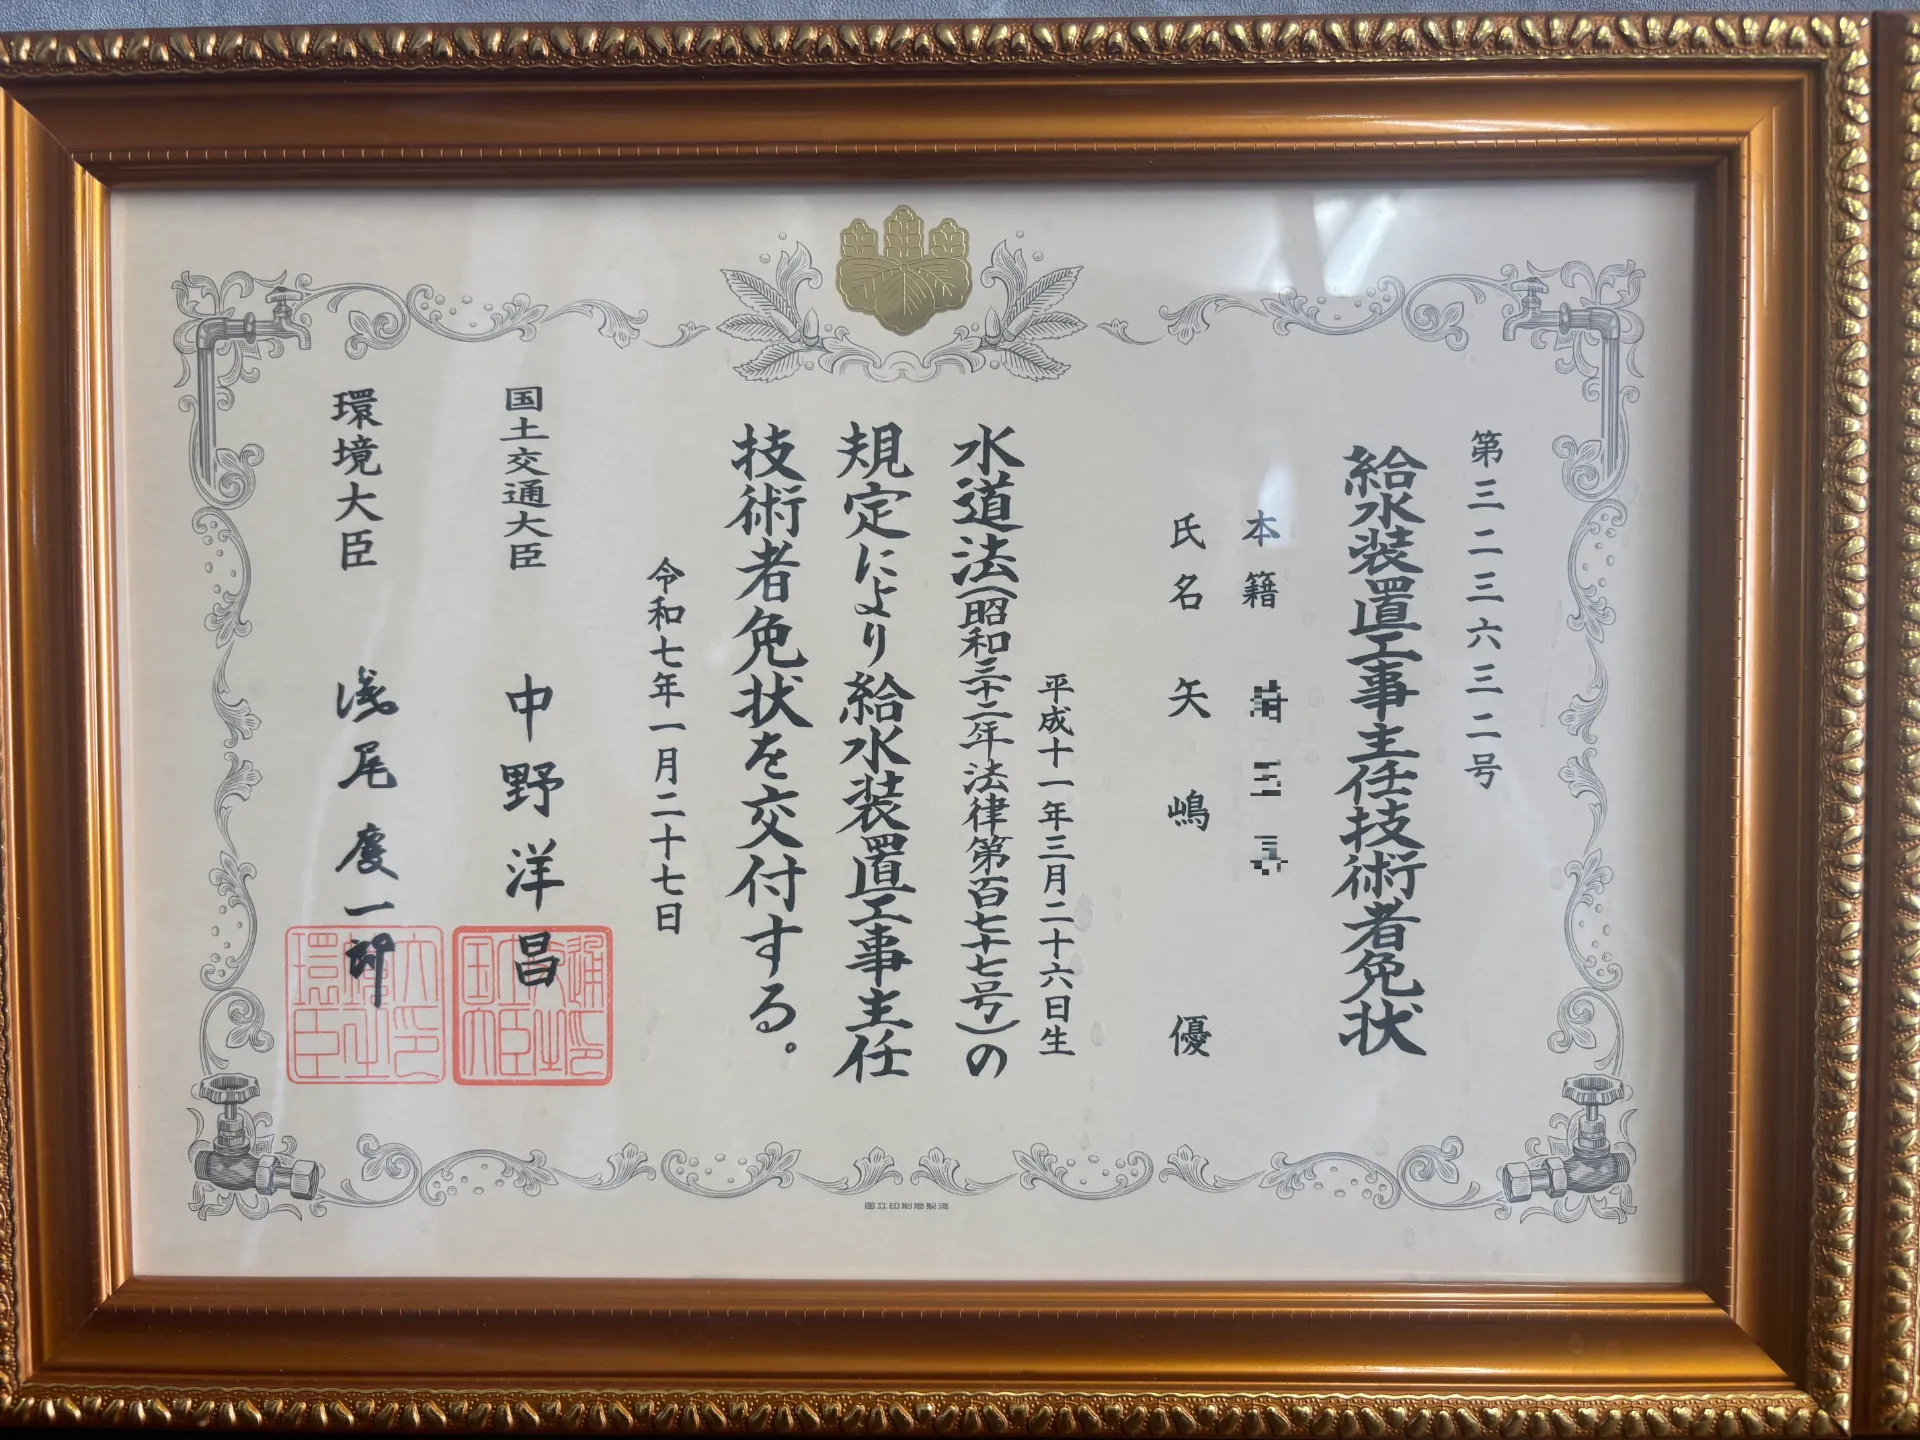 第三二三六三二号
給水装置工事主任技術者免状
本籍
氏名 矢嶋 優
平成十一年三月二十六日生
水道法(昭和三十二年法律第百七十七号)の
規定により給水装置工事主任
技術者免状を交付する。
令和七年一月二十七日
国土交通大臣 中野洋昌
環境大臣 浅尾慶一郎
国立印刷局製造